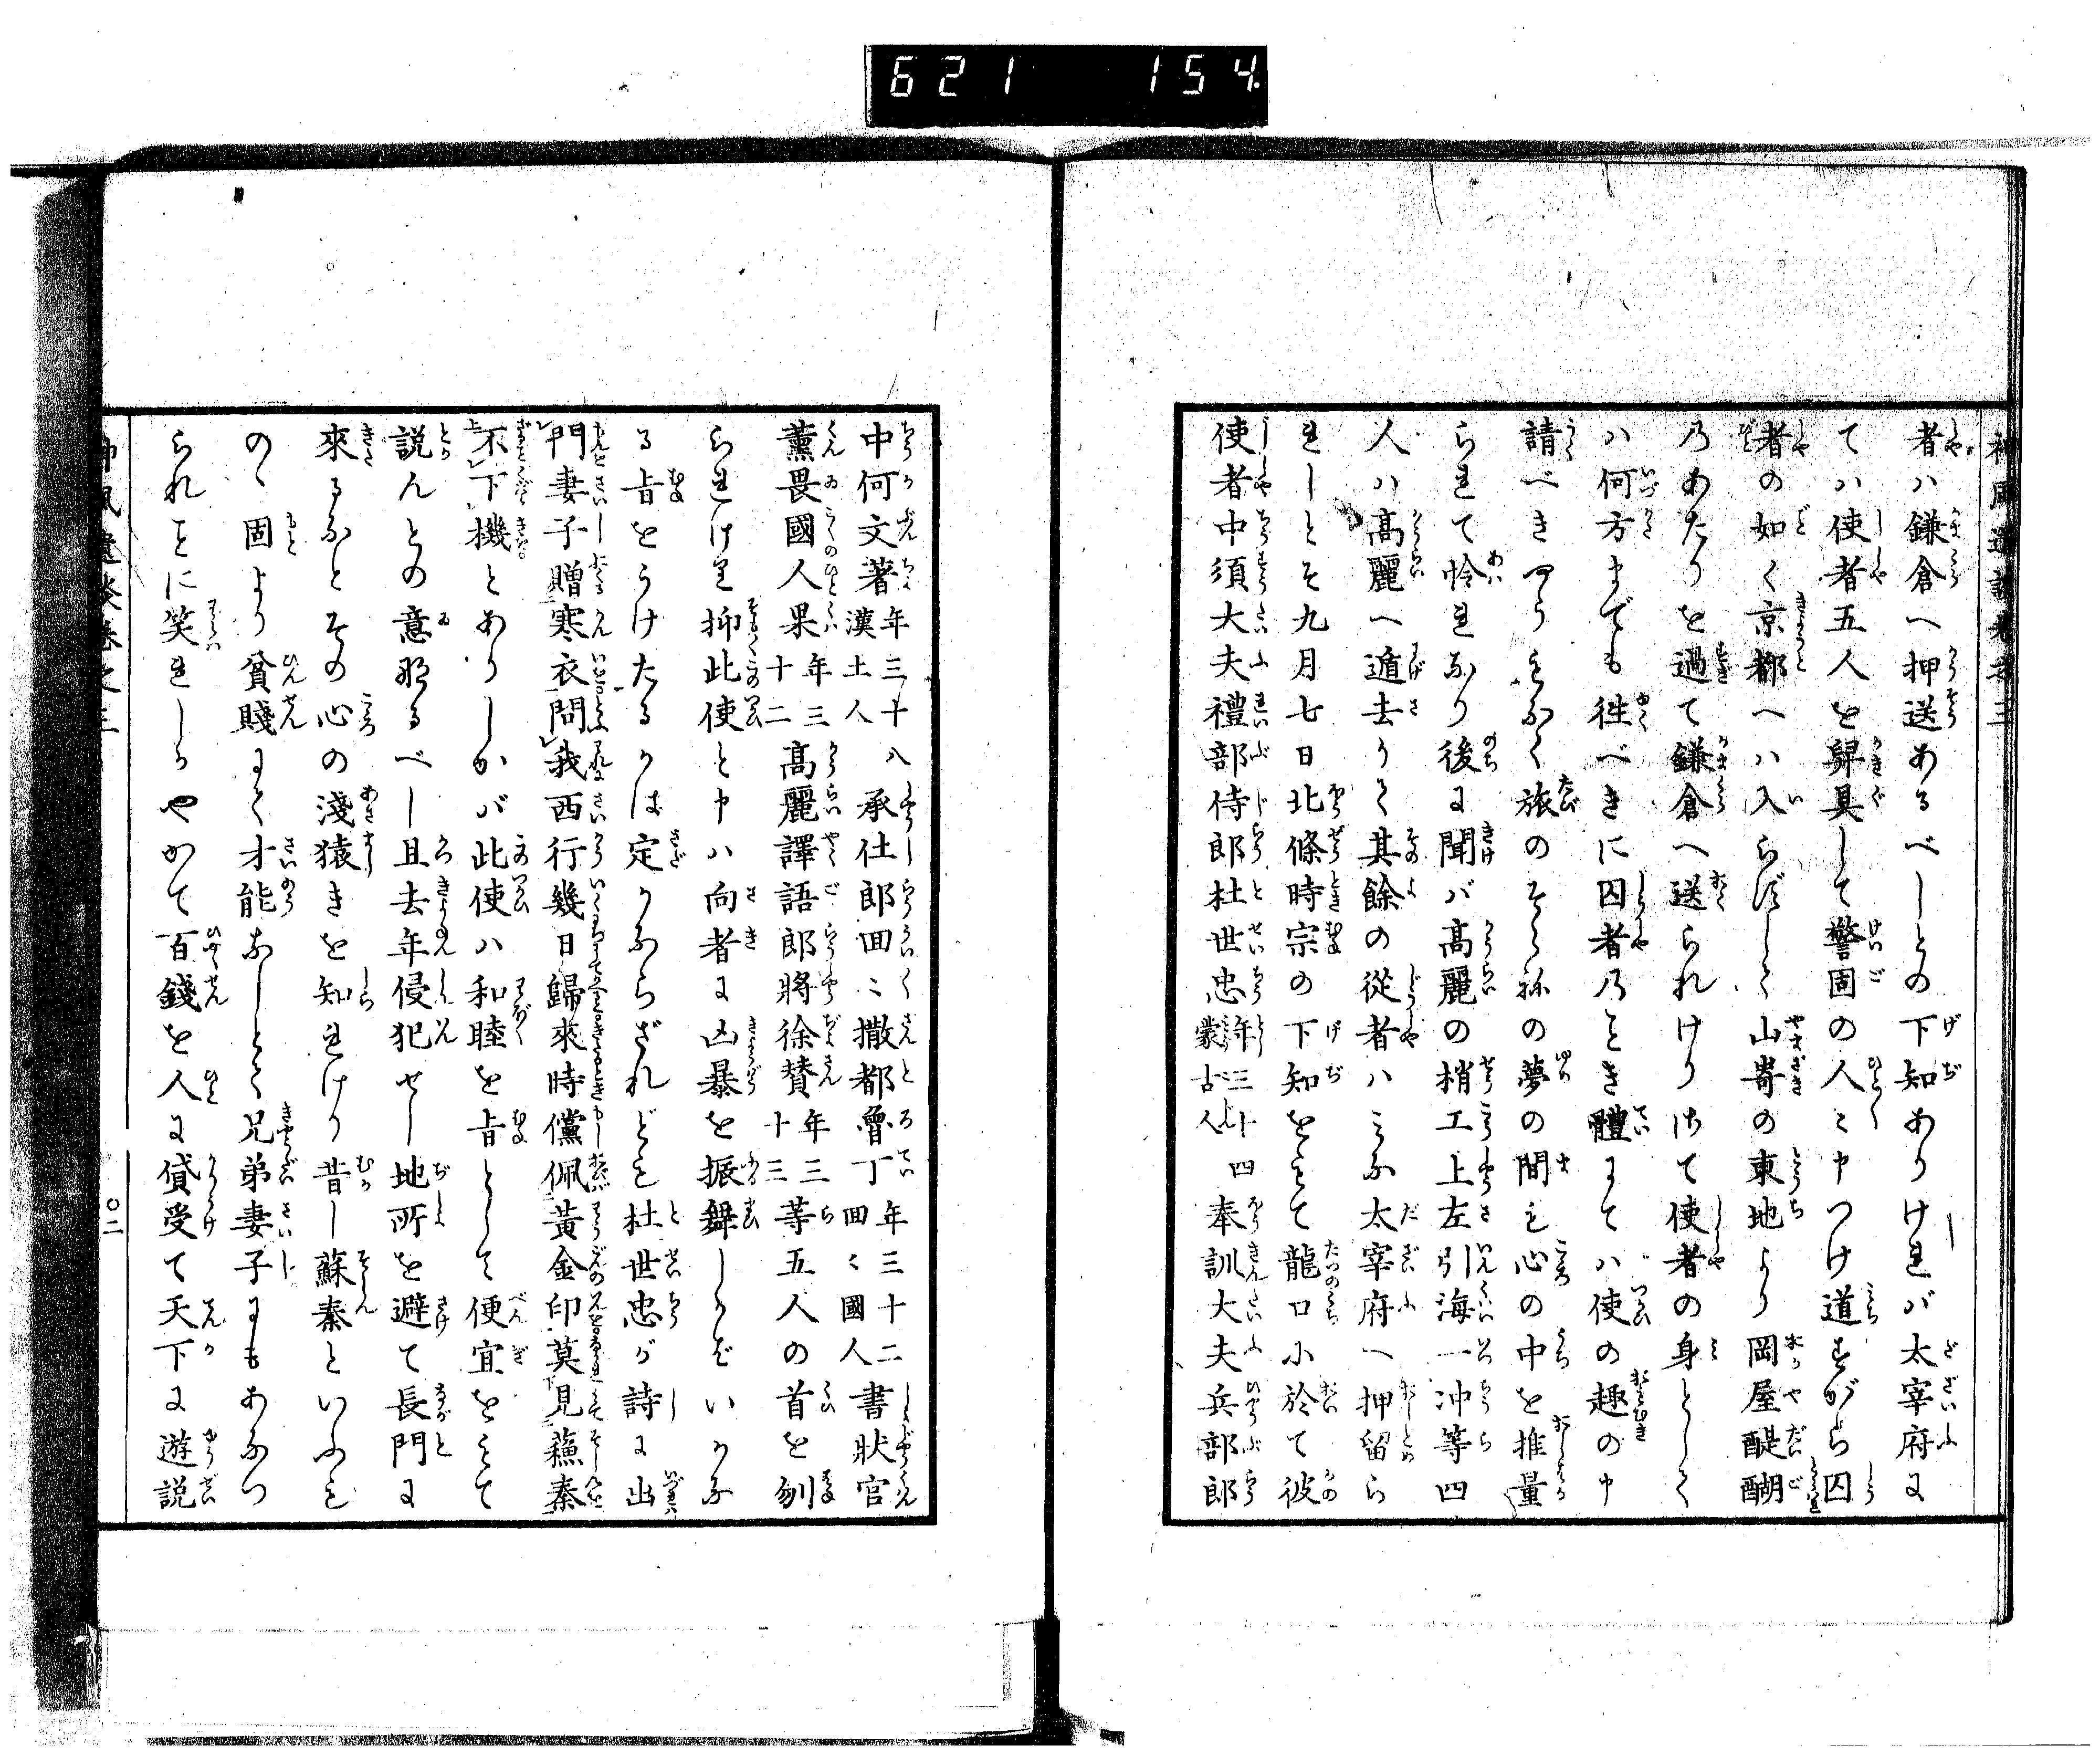 621 154
者ハ鎌倉へ押送あるべしとの下知ありけれバ太宰府に
てハ使者五人を舁具して警固の人〻申つけ道すがら囚
者の如く京都へハ入らずして山嵜の東地より岡屋醍醐
乃あたりを過て鎌倉へ送られけりさて使者の身として
ハ何方までも徃べきに囚者乃ごとき體にてハ使の趣の申
請べきやうもなく旅のそらねの夢の間も心の中を推量
られて怜れなり後に聞バ高麗の梢工上左引海一冲等四
人ハ高麗へ遁去りて其餘の從者ハみな太宰府へ押留ら
れしとそ九月七日北條時宗の下知をもて龍口小於て彼
使者中須大夫禮部侍郎杜世忠年三十四蒙古人奉訓大夫兵部郎
中何文著年三十八漢土人承仕郎囬〻撒都魯丁年三十二囬〻國人書狀官
薫畏國人果年三十二高麗譯語郎將徐賛年三十三等五人の首を刎
られけり抑此使と申ハ向者に凶暴を振舞しかどいかな
る旨をうけたるかは定かならざれども杜世忠が詩に出
門妻子贈寒衣問我西行幾日歸來時儻佩黃金印莫見蘓秦
不下機とありしかバ此使ハ和睦を旨として便宜をもて
説んとの意那るべし且去年侵犯せし地所を避て長門に
來るなとその心の淺猿きを知られけり昔し蘇秦といふも
のハ固より貧賤にて才能なしとて兄弟妻子にもあなつ
られことに笑れしかやかて百錢を人に貸受て天下に遊説
神風遺談卷之三
〇二